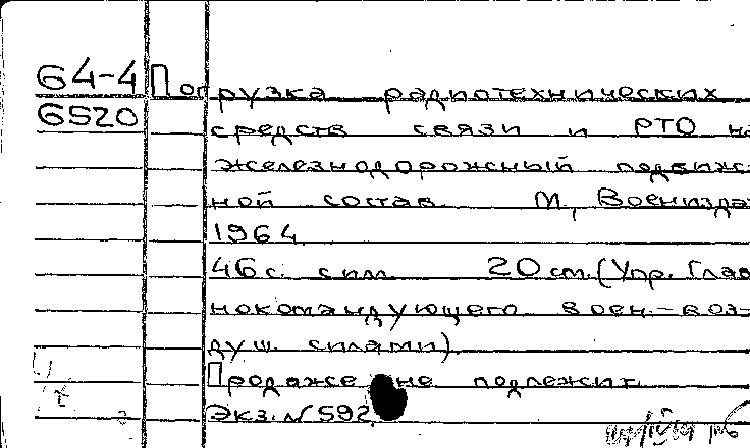 64-4 Погрузка радиотехнических
6520 средств связи и РТО на
железнодорожный подвиж-
ной состав М, Воениздат
1964
46 с. сил. 20 см. (Упр. Глав
нокомандующего воен.-воз-
душ. силами)
Продаже не подлежит.
Экз. № 592